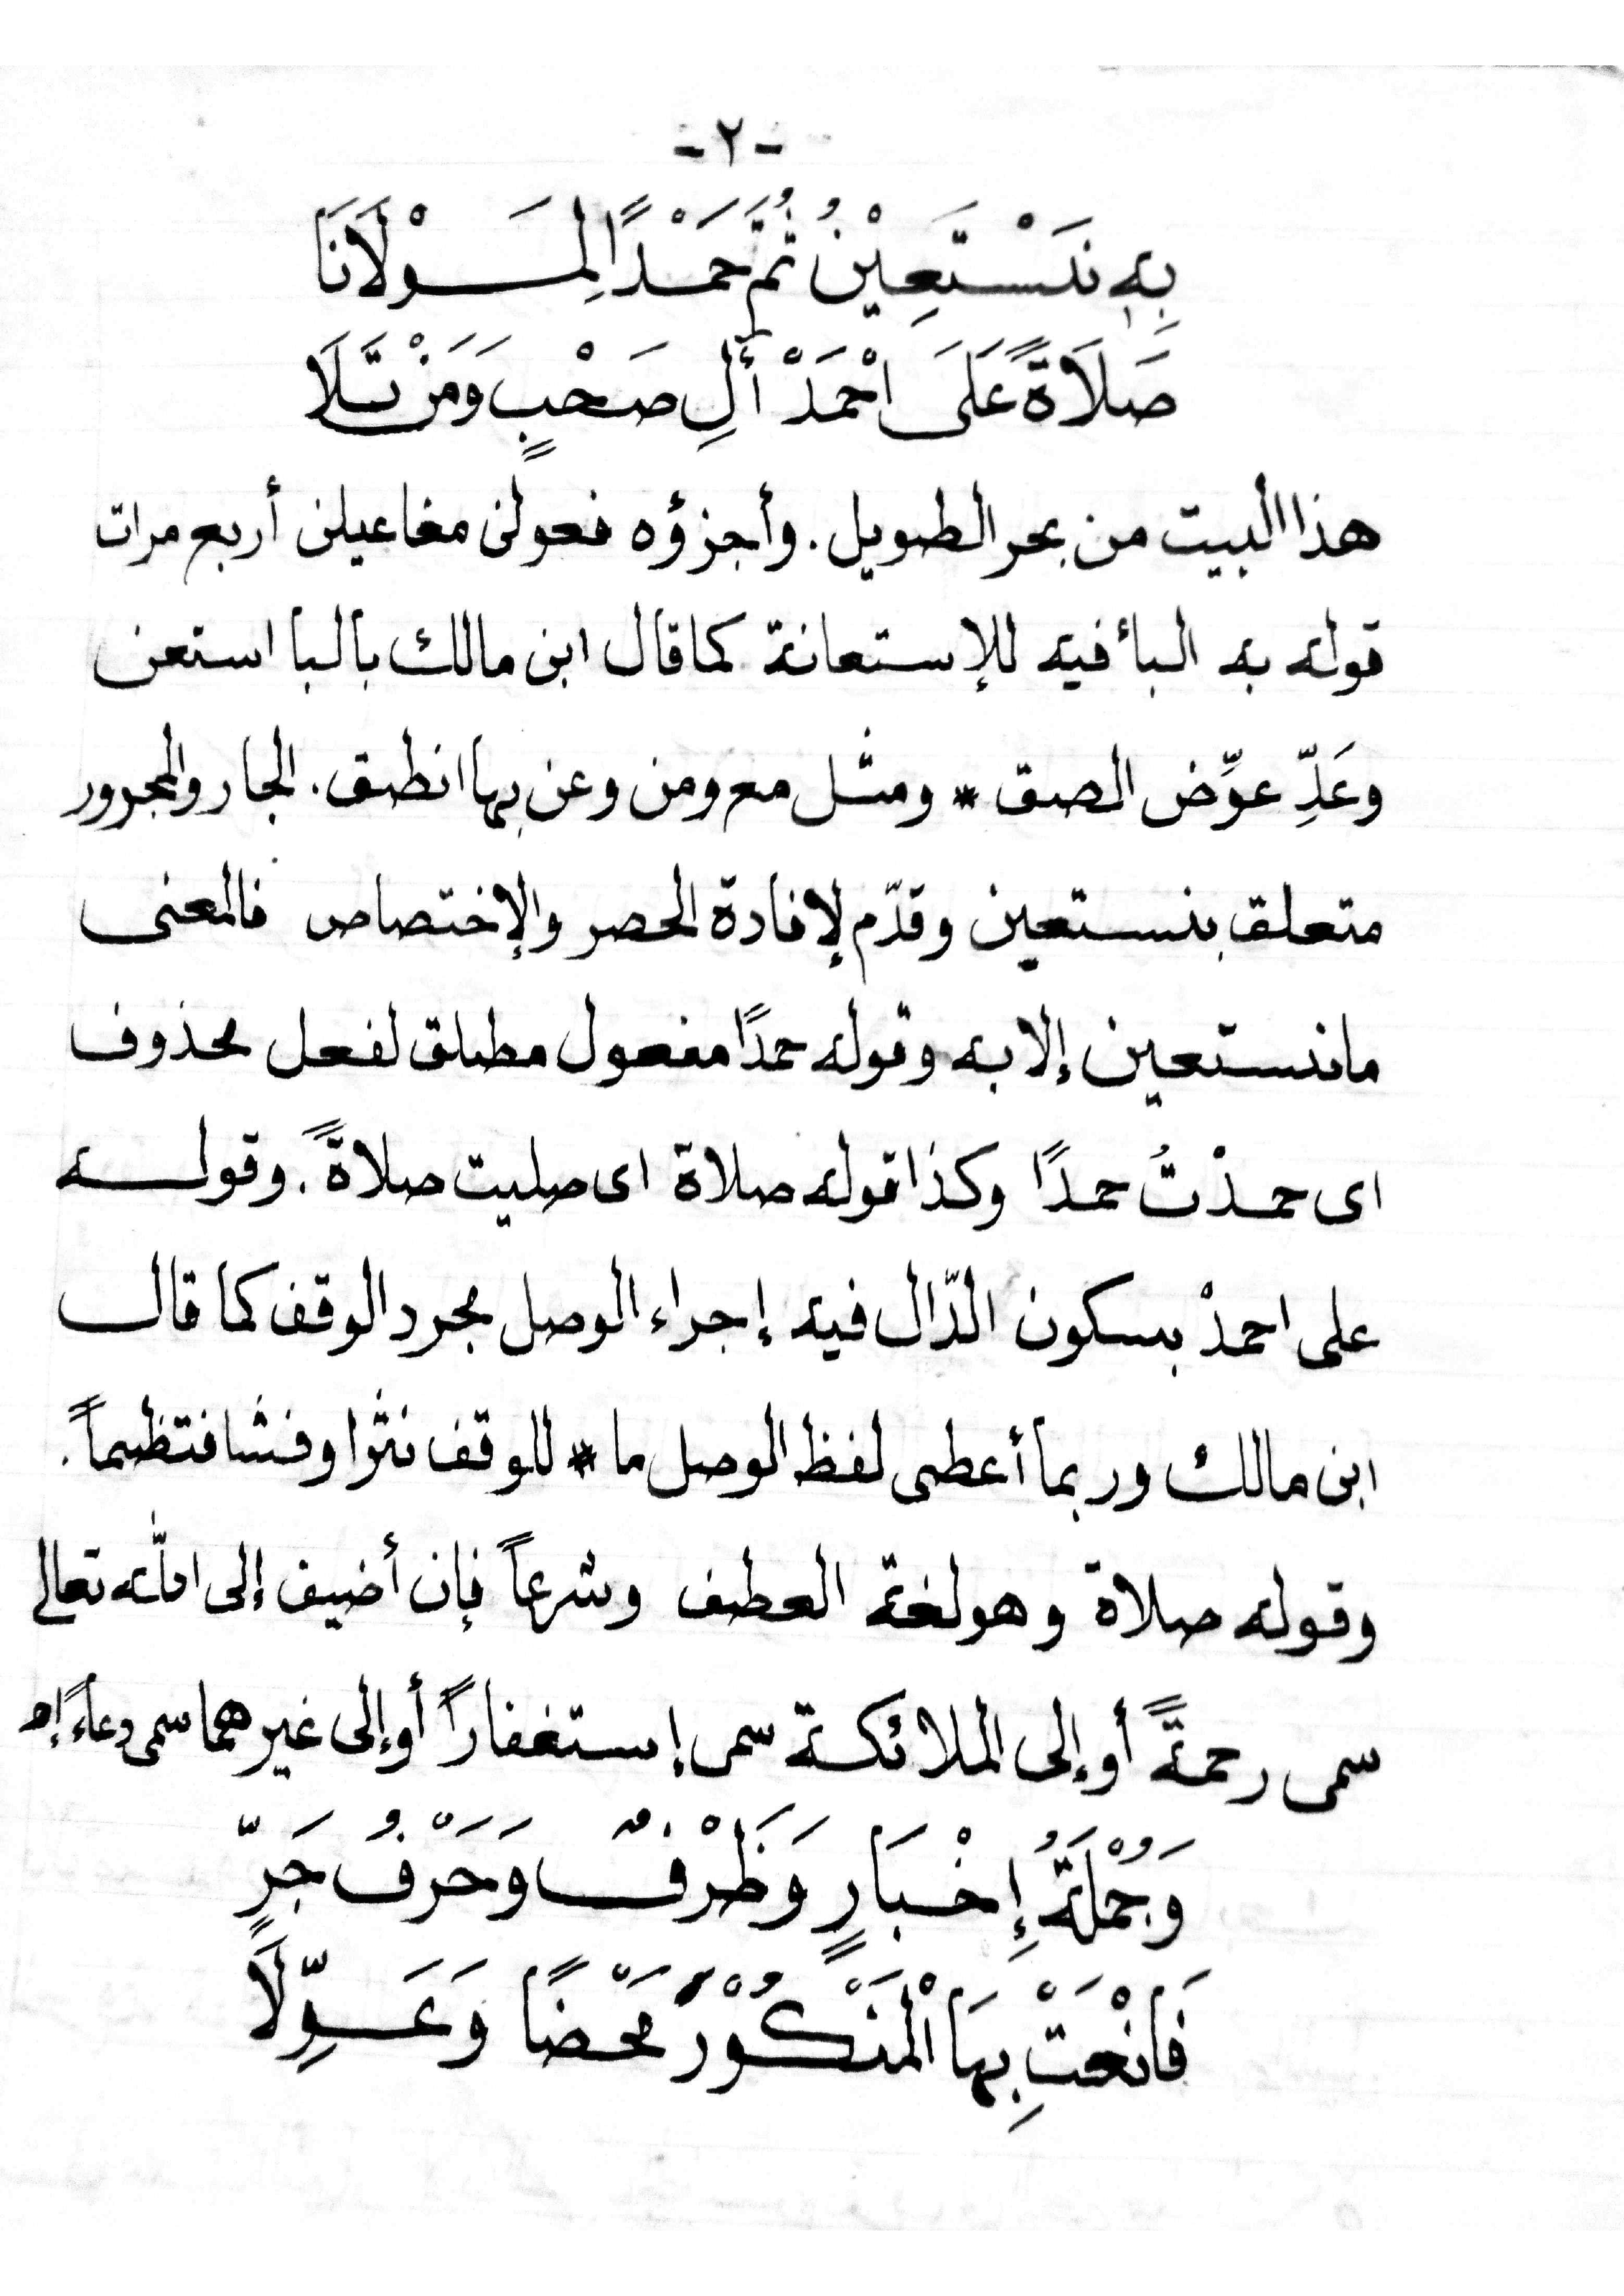 -٢-
بِهِ نَسْتَعِيْنُ ثُمَّ حَمْدًا لِمَوْلَانَا
صَلَاةً عَلَى احْمَدْ أَلِ صَحْبٍ وَمَنْ تَلَا
هذا البيت من بحر الطويل. وأجزؤه فعولن مفاعيلن أربع مرات
قوله به البأ فيه للإستعانة كما قال ابن مالك بالبا استعن
وعَدِّ عوِّض الصق * ومثل مع ومن وعن بها انطق. الجار والمجرور
متعلق بنستعين وقدّم لإفادة الحصر والإختصاص فالمعنى
ما نستعين إلا به وقوله حمدًا مفعول مطلق لفعل محذوف
اى حمدْتُ حمدًا وكذا قوله صلاة اى صليت صلاةً. وقوله
على احمدْ بسكون الدّال فيه إجراء الوصل مجرد الوقف كما قال
ابن مالك وربما أعطى لفظ الوصل ما * للوقف نثرا وفشا فتظماً.
وقوله صلاة وهو لغة العطف وشرعاً فإن أضيف إلى الله تعالى
سمى رحمةً أو إلى الملائكة سمى إستغفاراً أو إلى غيرهما سمى دعاءً إه
وَجُمْلَةُ إِخْبَارٍ وَظَرْفٌ وَحَرْفُ جَرٍّ
فَانْعَتْ بِهَا الْمَنْكُوْرَ مَحْضًا وَعَوِّلَاً